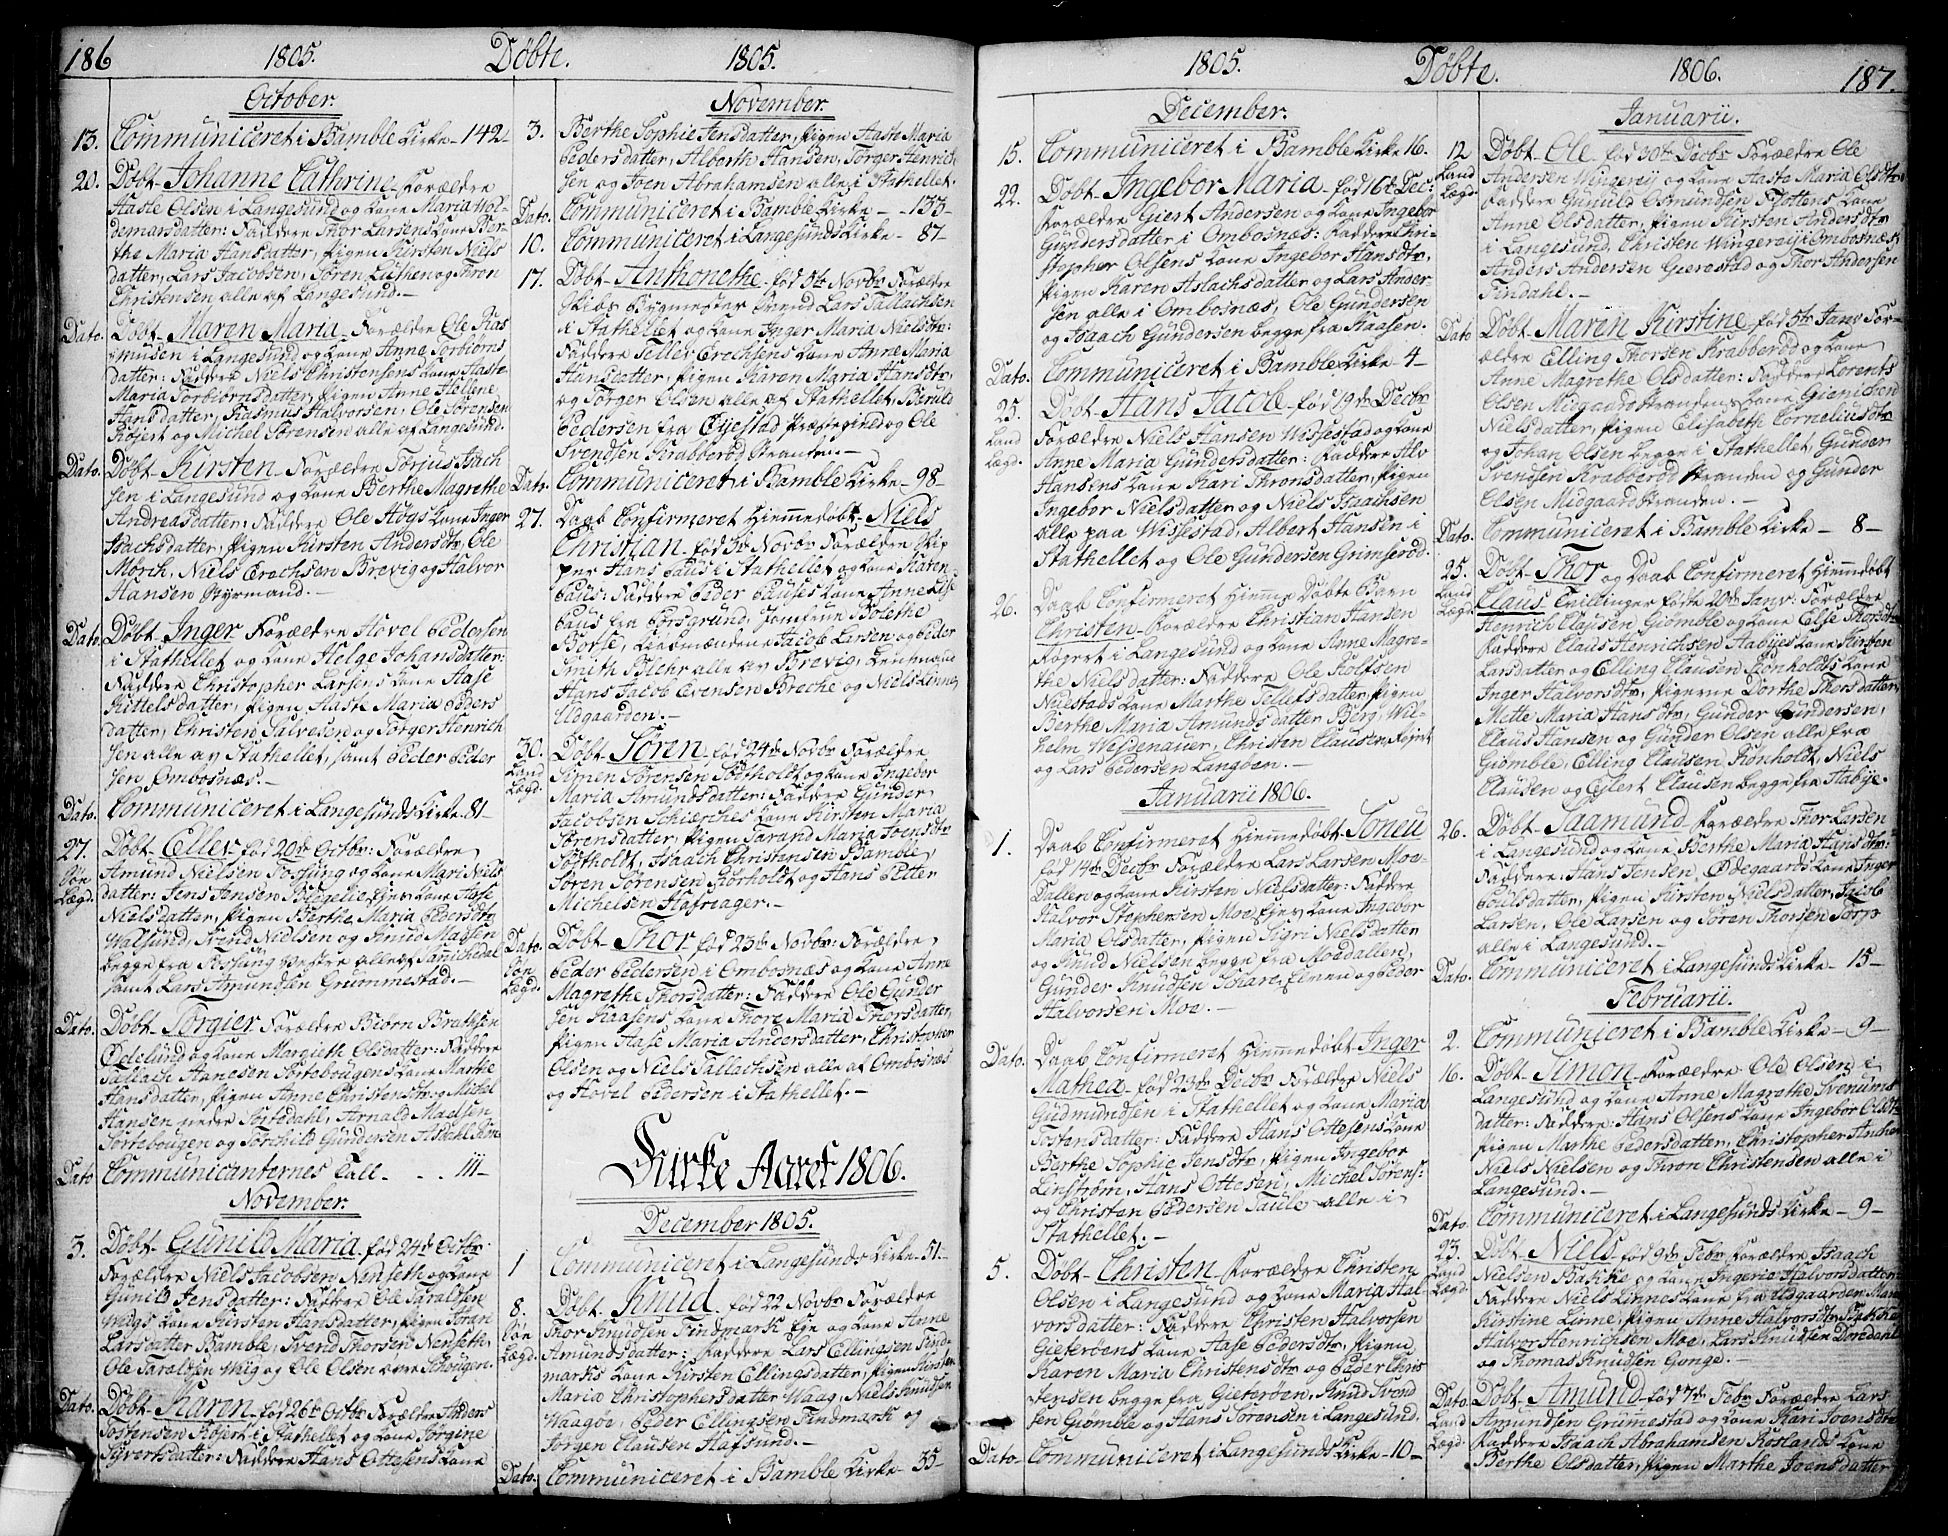 186 1805. Döbte. 1805.
October.
13. Communiceret i Bamble Kirke - 142 -
20. Döbt Johanne Cathrine Forældre
Aaste Olsen i Langesund og Kone Maria Wol-
demarsdatter: Faddere Thor Larsens Kone Ber-
the Maria Hansdatter, Pigen Kirsten Niels
datter, Lars Jacobsen, Sören og Thron
Christensen alle af Langesund. -
Dato. Döbt Maren Maria Forældre Ole Ras
musen i Langesund og Kone Anne Torbiörns
datter: Faddere Niels Christensens Kone Aaste
Maria Torbiörnsdatter, Pigen Anne Hellene
Hansdatter, Rasmus Halvorsen, Ole Sörensen
Röjert og Michel Sörensen alle af Langesund.
Dato. Döbt Kirsten Forældre Torjus Isach
sen i Langesund og Kone Berthe Magrethe
Andreasdatter: Faddere Ole Höys Kone Inger
Isachsdatter, Pigen Kirsten Andersdtr, Ole
Mörch, Niels Erochsen Brevig og Halvor
Hansen Styrmand. -
Dato. Döbt Inger Forældre Hovel Pedersen
i Stathellet og Kone Helge Johansdatter:
Faddere Christopher Larsens Kone Aase
Kittelsdatter, Pigen Aaste Maria Peders
datter, Christen Salvesen og Törger Henrich
sen alle av Stathellet, samt Peder Peder
sen, Ombosnæs. -
Dato. Communiceret i Langesunds Kirke 81 -
27. Döbt Eller föd 20de Octbr: Forældre
Sön Amund Nielsen Fossing og Kone Mari Niels
Lægd. datter: Jens Jensen Kone Aase
Nielsdatter, Pigen Berthe Maria Pedersdtr
Valsund, Svend Nielsen og Knud Madsen
begge fra Fossung
samt Lars Amundsen Gruommestad. -
Dato. Döbt Torgier Forældre Biörn Brathsen
Ödelund og Kone Margieth Olsdatter: Faddere
Tallach Hansen Tortebougens Kone Marthe
Hansdatter, Pigen Anne Christensdtr og Michel
Hansen nedre Arnold Madsen
Tortebougen og Torchild Gundersen
Dato Communicanternes Tall - . . 111 -
November.
3. Döbt Gunild Maria föd 24de Octbr
Forældre Niels Jacobsen Nenseth og Kone
Gunild Jensdatter: Faddere Ole Taraldsen
Wigs Kone Kirsten Hansdatter, Pigen Joran
Larsdatter Bamble, Svend Thorsen Nenseth,
Ole Taraldsen Wiig og Ole Olsen
Dato. Döbt Karen föd 26de Octbr Forældre Anders
Tostensen Röjert i Stathellet og Kone Törgine
Syvertsdatter: Faddere Hans Ottesens Kone
November.
3. Berthe Sophie Jensdatter, Pigen Aaste Maria
Pedersdatter, Alberth Hansen, Törger Henrich
sen og Joen Abrahamsen alle i Stathellet.
Dato. Communiceret i Bamble Kirke - 133 -
10. Communiceret i Langesunds Kirke - 87 -
17. Döbt Anthonethe föd 5te Novbr Forældre
Skibs Bygmester Svend Lars Tallachsen
i Stathellet og Kone Inger Maria Nielsdtr:
Faddere Teller Erochsens Kone Anne Maria
Hansdatter, Pigen Karen Maria Hansdtr,
og Törger Olsen alle af Stathellet
Pedersen fra Eijestad Præstegield og Ole
Svendsen Krabberöd Stranden -
Dato. Communiceret i Bamble Kirke - 98 -
27. Daab Confirmeret Hiemmedöbt Niels
Christian föd 3de Novbr Forældre Skip
per Hans Paus i Stathellet og Kone Karen
Paus: Faddere Peder Pauses Kone Anne Lise
Paus fra Porsgrund, Jomfrue Bolethe
Borse, Kiöbmændene Jacob Larsen og Peder
Smith Blehr alle av Brevig, Lentmand
Hans Jacob Evensen Breche og Niels Linne
Udgaarden. -
30. Döbt Sören föd 24de Novbr Forældre
Land Simen Sörensen Tostholt og Kone Ingebor
Lægd. Maria Amundsdatter: Faddere Gunder
Jacobsen Schierches Kone Kirsten Maria
Sörensdatter, Pigen Tarand Maria Joensdtr
Tostholdt, Isaach Christensen Bamble,
Sören Sörensen Rörholdt og Hans Petter
Michelsen Hafreager. -
Dato Döbt Thor föd 23de Novbr: Forældre
Sön Peder Pedersen i Ombosnæs og Kone Anne
Lægd. Magrethe Thorsdatter: Faddere Ole Gunder
sen Haasens Kone Thore Maria Thorsdatter,
Pigen Aase Maria Andersdatter, Christopher
Olsen og Niels Tallachsen alle af Ombosnæs
og Hovel Pedersen i Stathellet. -
Kirke Aaret 1806.
December 1805.
1 Communiceret i Langesunds Kirke - 51 -
8. Döbt Knud föd 22 Novbr Forældre
Sön Thor Knudsen Findmark Eje og Kone Anne
Lægd. Amundsdatter: Faddere Lars Ellingsen Find
marks Kone Kirsten Ellingsdatter, Pigen Kirsten
Maria Christophersdatter Waag, Niels Knudsen
Waagöe, Peder Ellingsen Findmark og
Jörgen Clausen Hafsund. -
Dato. Communiceret i Bamble Kirke - 55 -
1805. Döbte. 1806. 187.
December.
15. Communiceret i Bamble Kirke 16.
22. Döbt Ingebor Maria föd 16de Dec:
Forældre Giert Andersen og Kone Ingebor
Gundersdatter i Ombosnæs: Faddere Chri-
stopher Olsens Kone Ingebor Hansdtr,
Pigen Karen Aslachsdatter og Lars Ander-
sen alle i Ombosnæs, Ole Gundersen
og Isaach Gundersen begge fra Haasen.
Dato. Communiceret i Bamble Kirke 4 -
25. Döbt Hans Jacob föd 19de Decbr
Land Forældre Niels Hansen Wissestad og Kone
Lægd. Anne Maria Gundersdatter: Faddere Alv
Hansens Kone Kari Thronsdatter, Pigen
Ingebor Nielsdatter og Niels Isaachsen
alle paa Wissestad, Albert Hansen i
Stathellet og Ole Gundersen Grimseröd.
26. Daab Confirmeret Hiemme Döbte Barn
Christen Forældre Christian Hansen
Röyert i Langesund og Kone Anne Magre-
the Nielsdatter: Faddere Ole Rolfsen
Neustads Kone Marthe Tellefsdatter, Pigen
Berthe Maria Amundsdatter Berg, Wil-
helm Weidenauer, Christen Clausen Röjert
og Lars Pedersen Langöen. -
Januarii 1806.
1. Daab Confirmeret Hiemmedöbt Toneu
föd 14de Decbr Forældre Lars Larsen Moe-
Dallen og Kone Kirsten Nielsdatter: Faddere
Halvor Stephensen Moe Ejes Kone Ingebor
Maria Olsdatter, Pigen Sigri Nielsdatter
og Knud Nielsen begge fra Moedallen,
Gunder Knudsen og Peder
Halvorsen Moe. -
Dato. Daab Confirmeret Hiemmedöbt Inger
Mathea föd 23de Decbr Forældre Niels
Gudmundsen i Stathellet og Kone Maria
Tostensdatter: Faddere Hans Ottesens Kone
Berthe Sophie Jensdtr, Pigen Ingebor
Linström, Hans Ottesen, Michel Sörens:
og Christen Pedersen Taule alle i
Stathellet. -
5. Döbt Christen Forældre Christen
Olsen i Langesund og Kone Maria Hal
vorsdatter: Faddere Christen Halvorsen
Gieteröens Kone Aase Pedersdtr, Pigen
Karen Maria Christensdtr og Peder Chris
tensen begge fra Gieteröen, Knud Svend
sen Giömble og Hans Sörensen i Langesund.
Dato Communiceret i Langesunds Kirke - 10 -
Januarii.
12 Döbt Ole föd 30te Decbr Forældre Ole
Land Andersen Wingereij og Kone Aaste Maria Olsdtr:
Lægd. Faddere Gunuld Osmundsen Flottens Kone
Anne Olsdatter, Pigen Kirsten Andersdtr
i Langesund, Christen Wingereij i Ombosnæs,
Anders Andersen Gierestad og Thor Andersen
Findahl. -
Dato Döbt Maren Kirstine föd 5te Janv For-
ældre Elling Thorsen Krabberöd og Kone
Anne Magrethe Olsdatter: Faddere Lorents
Olsen Midgaard Strandens Kone Giemichen
Nielsdatter, Pigen Elisabeth Corneliusdtr
og Johan Olsen begge i Stathellet, Gunder
Svendsen Krabberöd Stranden og Gunder
Olsen Midgaard Stranden. -
Dato. Communiceret i Bamble Kirke - 8 -
25. Döbt Thor og Daab Confirmeret Hiemmedöbt
Land Claus Tvillinger födte 20de Janv: Forældre
Lægd. Henrich Clausen Giömble og Kone Else Thorsdtr
Faddere Claus Henrichsen Stabijes Kone Kirsten
Larsdatter og Elling Clausen Rönholdts Kone
Inger Halvorsdtr, Pigerne Dorthe Thorsdatter,
Mette Maria Hansdtr, Gunder Gundersen,
Claus Hansen og Gunder Olsen alle fra
Giömble, Elling Clausen Rönholdt, Niels
Clausen og Eylert Clausen begge fra Stabije.
26. Döbt Saamund Forældre Thor Larsen
i Langesund og Kone Berthe Maria Hansdtr:
Faddere: Hans Jensen, Ödegaards Kone Inger
Poulsdatter, Pigen Kirsten Nielsdatter, Jacob
Larsen, Ole Larsen og Sören Thorsen Torp
alle i Langesund. -
Dato. Communiceret i Langesunds Kirke - 15 -
Februarii.
2. Communiceret i Bamble Kirke - 9 -
16. Döbt Simon Forældre Ole Olsen i
Langesund og Kone Anne Magrethe Svenums
datter: Faddere: Hans Olsens Kone Ingebor Olsdtr
Pigen Marthe Pedersdatter, Christopher Anthon
Niels Nielsen og Thron Christensen alle i
Langesund. -
Dato. Communiceret i Langesunds Kirke - 9 -
23. Döbt Niels föd 9de Febr Forældre Isaach
Land Nielsen Bakke og Kone Ingerie Halvorsdatter:
Lægd. Faddere Niels Linnes Kone fra Udgaarden Maren
Kirstine Linne, Pigen Anne Halvorsdtr Bakke,
Halvor Henrichsen Moe, Lars Knudsen Dordahl
og Thomas Knudsen Gonge. -
Dato. Döbt Amund föd 7de Febr Forældre Lars
Land Amundsen Grumestad og Kone Kari Joensdtr
Lægd. Faddere Isaach Abrahamsen Roslands Kone
Berthe Olsdatter, Pigen Marthe Joensdatter